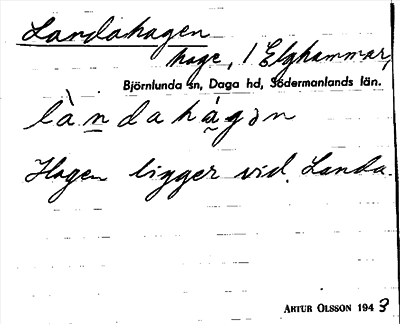 Landahagen
hage, / Elghammar,
Björnlunda sn, Daga hd, Södermanlands län.
làndahágən
Hagen ligger vid. Landa.
ARTUR OLSSON 1943